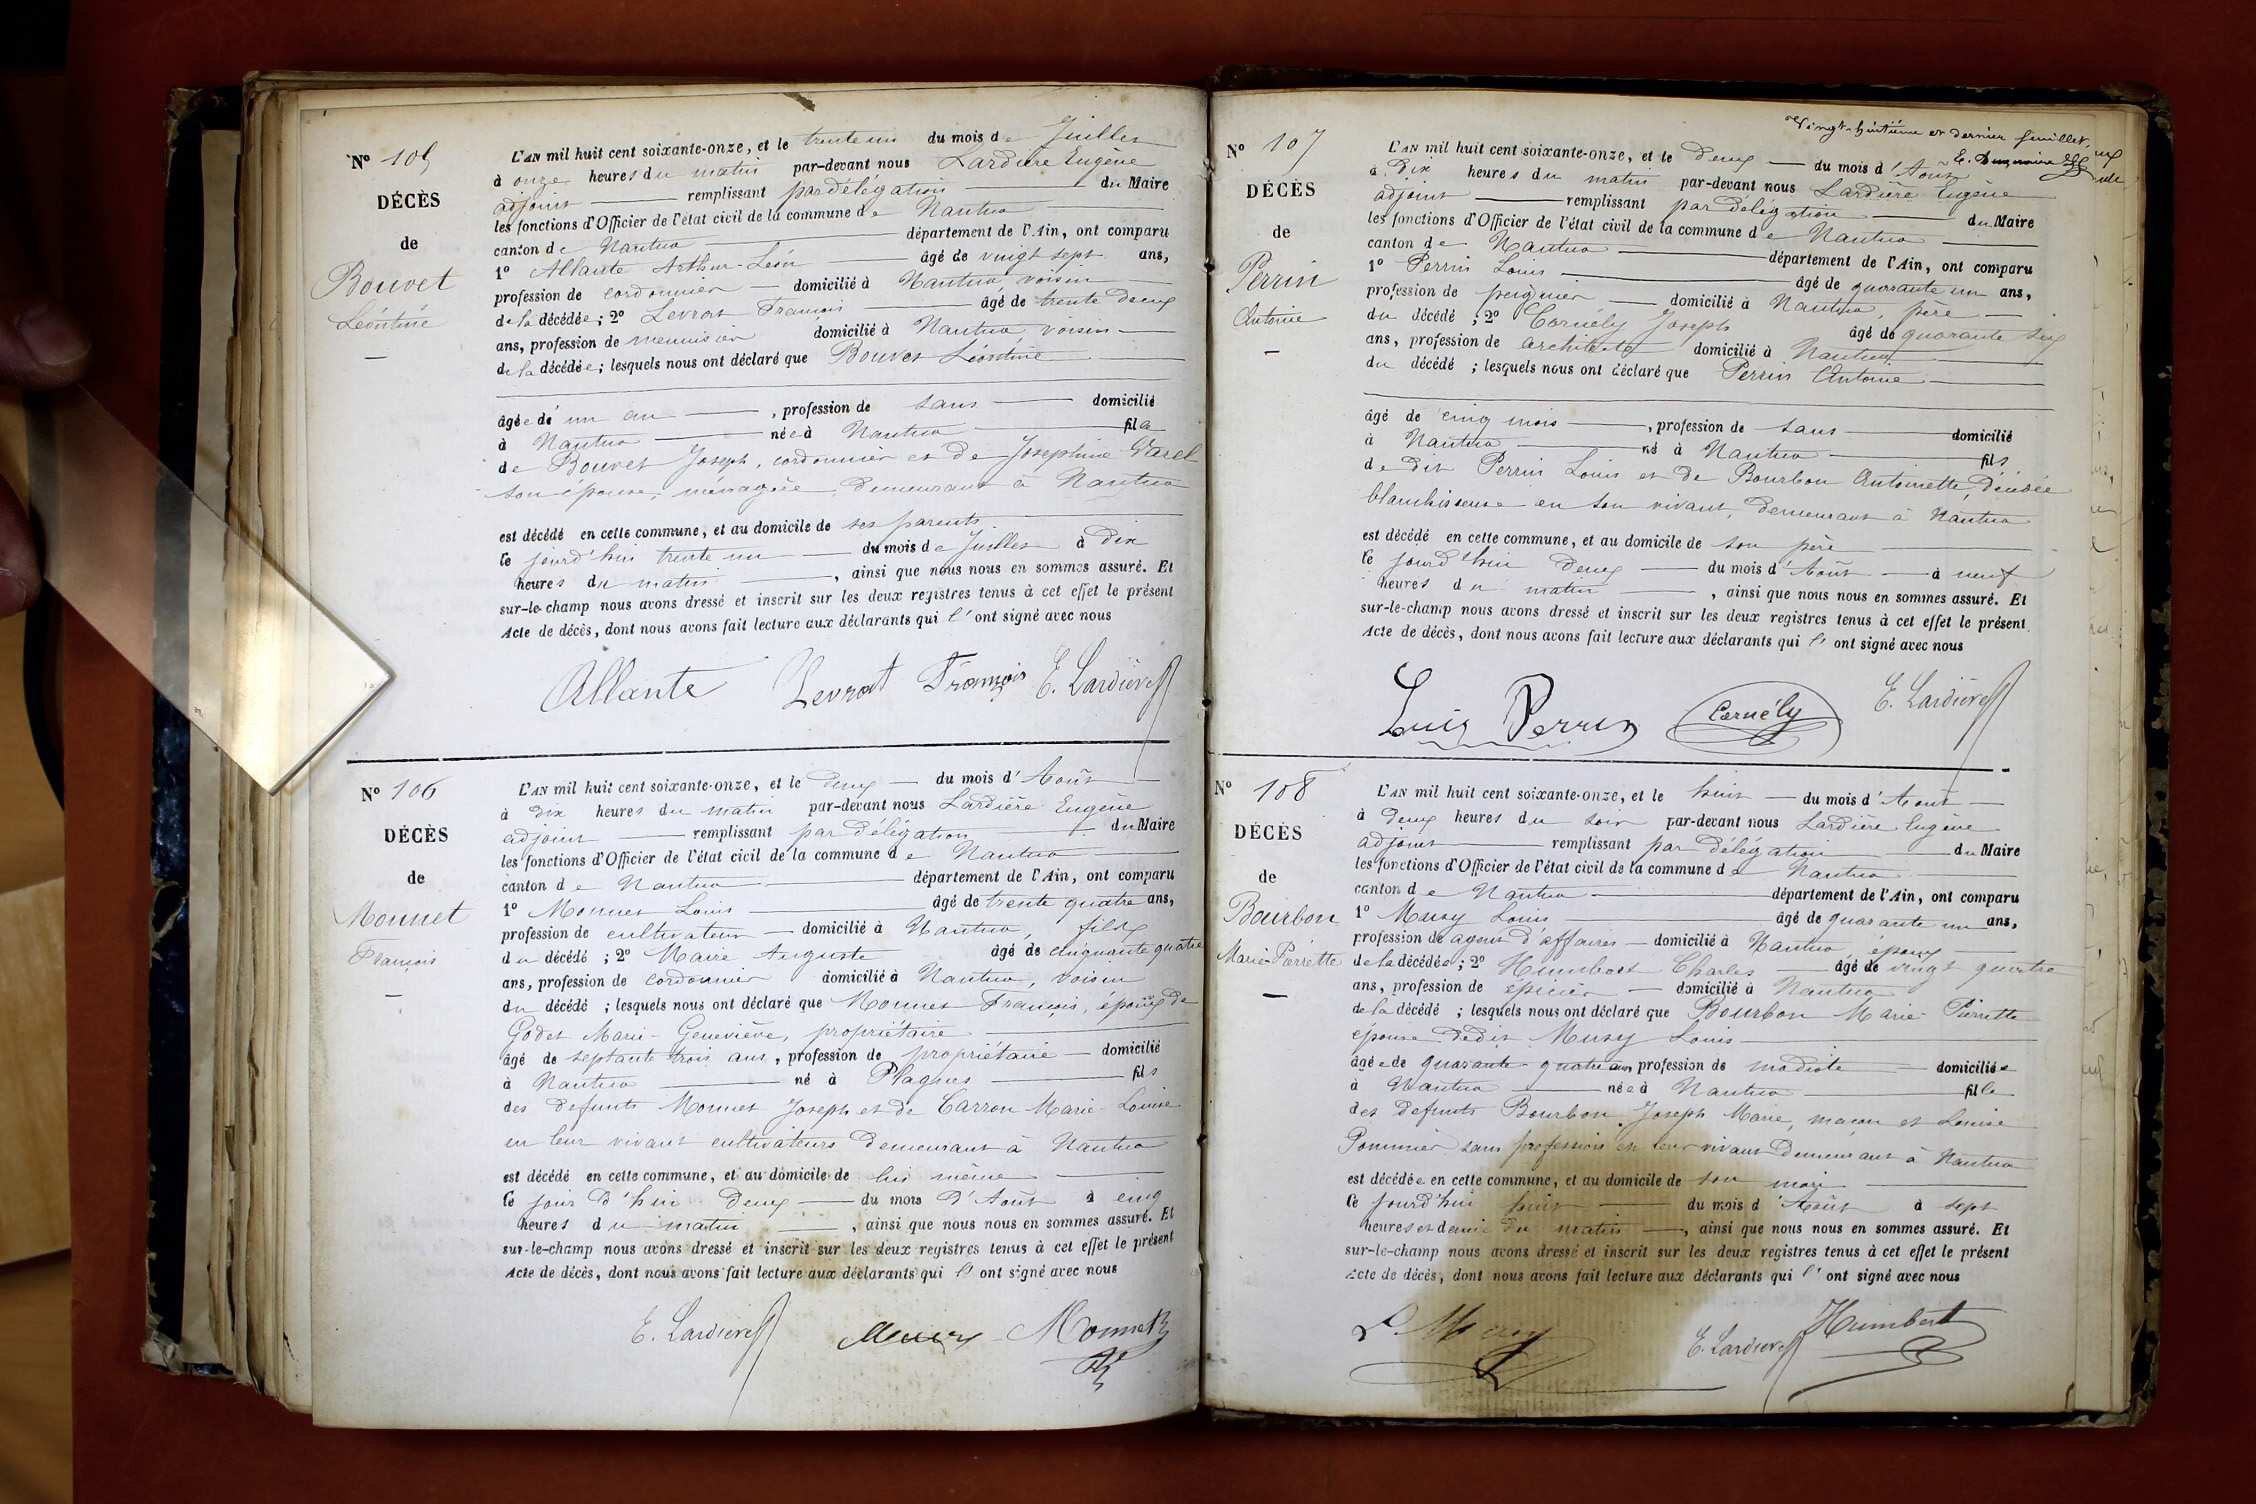 N° 105
DÉCÈS
de
Bouvet
Léontine
L'AN mil huit cent soixante-onze, et le trente un du mois de Juillet
à onze heures du matin par-devant nous Lardière Eugène
adjoint remplissant par délégation du Maire
les fonctions d'Officier de l'état civil de la commune de Nantua
canton de Nantua département de l'Ain, ont comparu
1° Allante Arthur-Léon âgé de vingt sept ans,
profession de cordonnier domicilié à Nantua, voisin
de la décédée; 2° Levrat François âgé de trente deux
ans, profession de menuisier domicilié à Nantua, voisin
de la décédée; lesquels nous ont déclaré que Bouvet Léontine
âgée de un an, profession de sans domicilié
à Nantua née à Nantua
de Bouvet Joseph, cordonnier et de Josephine Varel
son épouse, ménagère, demeurant à Nantua
est décédé en cette commune, et au domicile de ses parents
le jourd'hui trente un du mois de Juillet à dix
heures du matin, ainsi que nous nous en sommes assuré. Et
sur-le-champ nous avons dressé et inscrit sur les deux registres tenus à cet effet le présent
Acte de décès, dont nous avons fait lecture aux déclarants qui l'ont signé avec nous
Allante Levrat François E. Lardière
N° 106
DÉCÈS
de
Monnet
François
L'AN mil huit cent soixante-onze, et le deux du mois d'Août
à dix heures du matin par-devant nous Lardière Eugène
adjoint remplissant par délégation du Maire
les fonctions d'Officier de l'état civil de la commune de Nantua
canton de Nantua département de l'Ain, ont comparu
1° Monnet Louis âgé de trente quatre ans,
profession de cultivateur domicilié à Nantua, fils
du décédé; 2° Maire Auguste âgé de cinquante quatre
ans, profession de cordonnier domicilié à Nantua, voisin
du décédé; lesquels nous ont déclaré que Monnet François, époux de
Godet Marie-Geneviève, propriétaire
âgé de septante trois ans, profession de propriétaire domicilié
à Nantua né à Plagnes fils
des defunts Monnet Joseph et de Carron Marie-Louise
en leur vivant cultivateurs demeurant à Nantua
est décédé en cette commune, et au domicile de lui même
le jour d'hui deux du mois d'Août à cinq
heures du matin, ainsi que nous nous en sommes assuré. Et
sur-le-champ nous avons dressé et inscrit sur les deux registres tenus à cet effet le présent
Acte de décès, dont nous avons fait lecture aux déclarants qui l'ont signé avec nous
E. Lardière Monnet
Vingt-huitième et dernier feuillet
N° 107
DÉCÈS
de
Perrin
Antoine
L'AN mil huit cent soixante-onze, et le deux du mois d'Août
à dix heures du matin par-devant nous Lardière Eugène
adjoint remplissant par délégation du Maire
les fonctions d'Officier de l'état civil de la commune de Nantua
canton de Nantua département de l'Ain, ont comparu
1° Perrin Louis âgé de quarante un ans,
profession de peignier domicilié à Nantua, père
du décédé; 2° Cornély Joseph âgé de quarante six
ans, profession de architecte domicilié à Nantua
du décédé; lesquels nous ont déclaré que Perrin Antoine
âgé de cinq mois, profession de sans domicilié
à Nantua né à Nantua fils
de dit Perrin Louis et de Bourbon Antoinette, décédée
blanchisseuse en son vivant, demeurant à Nantua
est décédé en cette commune, et au domicile de son père
le jourd'hui deux du mois d'Août à neuf
heures du matin, ainsi que nous nous en sommes assuré. Et
sur-le-champ nous avons dressé et inscrit sur les deux registres tenus à cet effet le présent
Acte de décès, dont nous avons fait lecture aux déclarants qui l'ont signé avec nous
Louis Perrin Cornély E. Lardière
N° 108
DÉCÈS
de
Bourbon
Marie-Pierrette
L'AN mil huit cent soixante-onze, et le huit du mois d'Août
à deux heures du soir par-devant nous Lardière Eugène
adjoint remplissant par délégation du Maire
les fonctions d'Officier de l'état civil de la commune de Nantua
canton de Nantua département de l'Ain, ont comparu
1° Musy Louis âgé de quarante un ans,
profession de agent d'affaires domicilié à Nantua, époux
de la décédée; 2° Humbert Charles âgé de vingt quatre
ans, profession de épicier domicilié à Nantua
de la décédé; lesquels nous ont déclaré que Bourbon Marie-Pierrette
épouse dudit Musy Louis
âgée de quarante-quatre ans, profession de modiste domiciliée
à Nantua née à Nantua fille
des defunts Bourbon Joseph Marie, maçon et Louise
Pommier sans profession en leur vivant demeurant à Nantua
est décédée en cette commune, et au domicile de son mari
le jourd'hui huit du mois d'Août à sept
heures et demie du matin, ainsi que nous nous en sommes assuré. Et
sur-le-champ nous avons dressé et inscrit sur les deux registres tenus à cet effet le présent
Acte de décès, dont nous avons fait lecture aux déclarants qui l'ont signé avec nous
E. Lardière Humbert